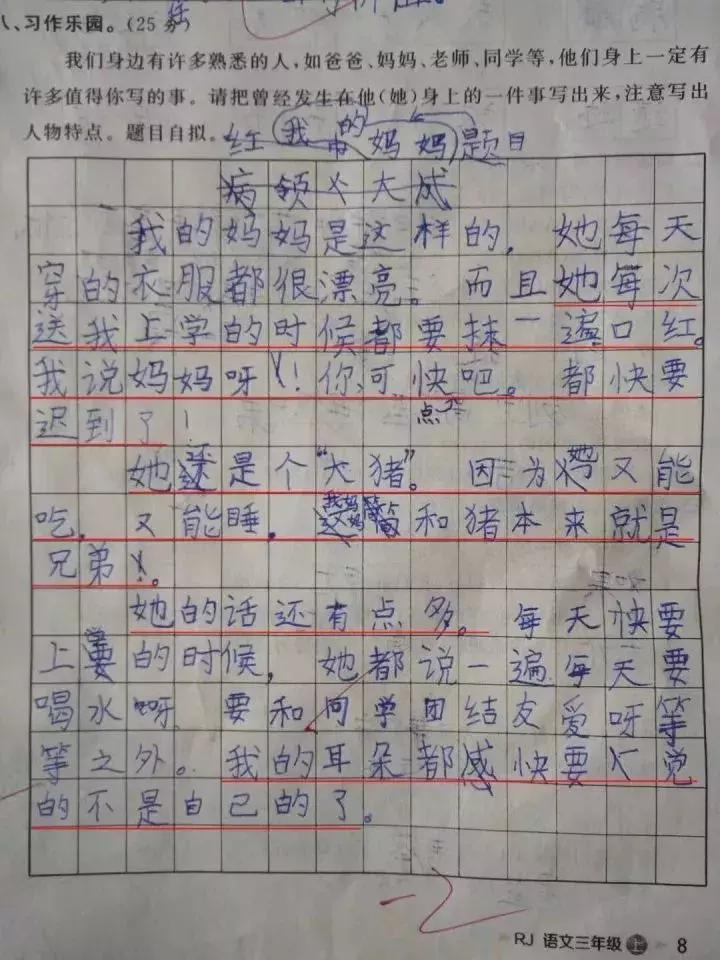 八、习作乐园。(25分)
我们身边有许多熟悉的人,如爸爸、妈妈、老师、同学等,他们身上一定有
许多值得你写的事。请把曾经发生在他(她)身上的一件事写出来,注意写出
人物特点。题目自拟。
我的妈妈 题目
病领 大成
我的妈妈是这样的,她每天
穿的衣服都很漂亮。而且她每次
送我上学的时候都要抹一遍口红。
我说妈妈呀!你可快点吧。都快要
迟到了!
她还是个“大猪”。因为她又能
吃,又能睡,我妈妈简 和猪本来就是
兄弟。
她的话还有点多。每天快要
上学的时候,她都说一遍每天要
喝水呀 要和同学团结友爱呀等
等之外。我的耳朵都感快要 觉
的不是自己的了。
RJ 语文三年级 上 8